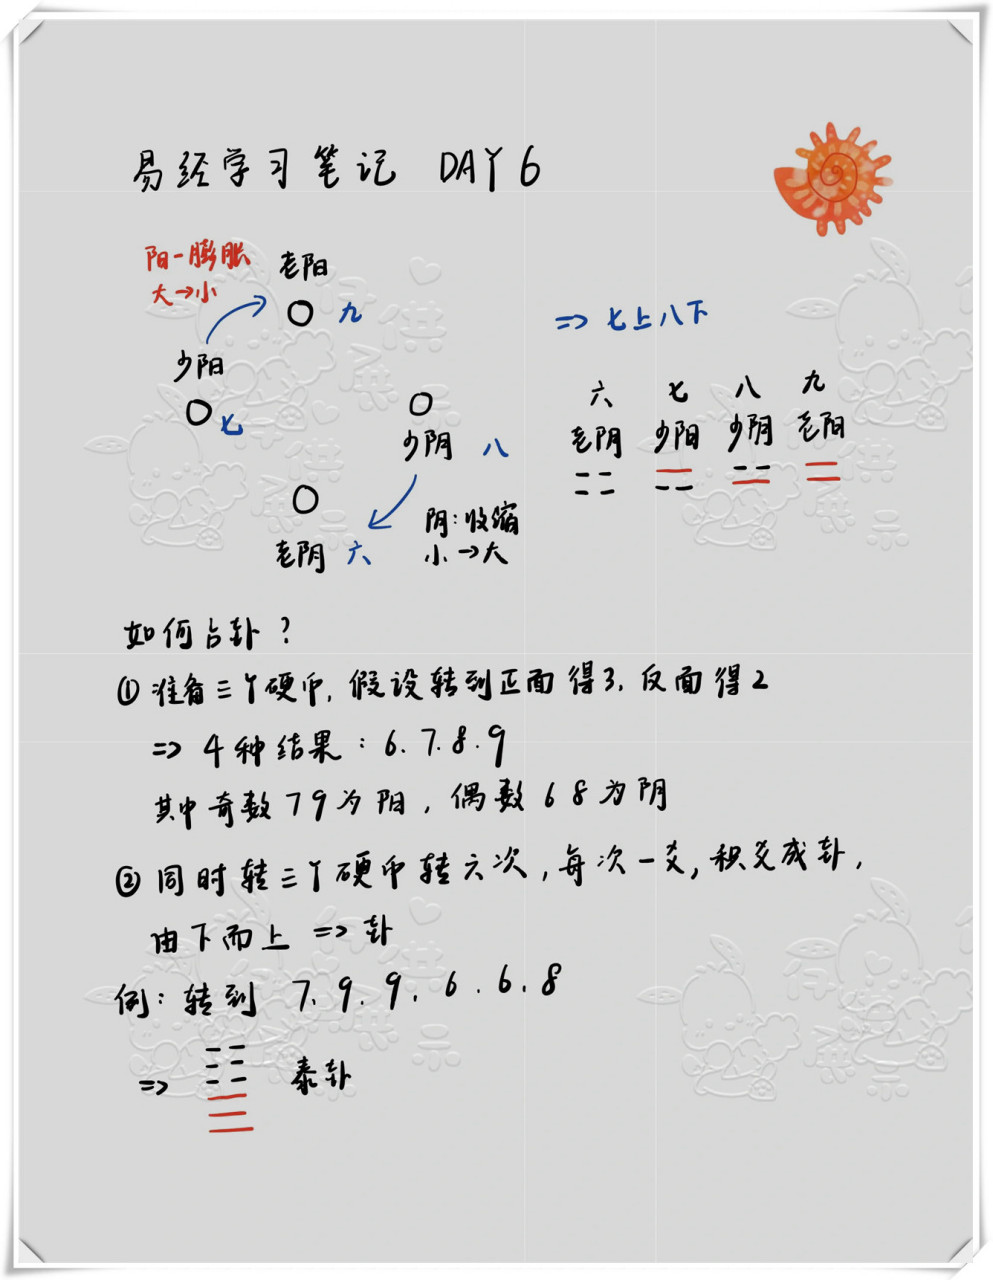 易经学习笔记 DAY 6
阳-膨胀
大→小
老阳
九
少阳
七
少阴
八
老阴 六
阴:收缩
小→大
=> 七上八下
六 七 八 九
老阴 少阳 少阴 老阳
如何占卦?
① 准备三个硬币,假设转到正面得3,反面得2
=> 4种结果:6.7.8.9
其中奇数79为阳,偶数68为阴
② 同时转三个硬币转六次,每次一爻,积爻成卦,
由下而上 => 卦
例:转到 7.9.9.6.6.8
=> 泰卦
仅供展示
仅供展示
仅供展示
仅供展示